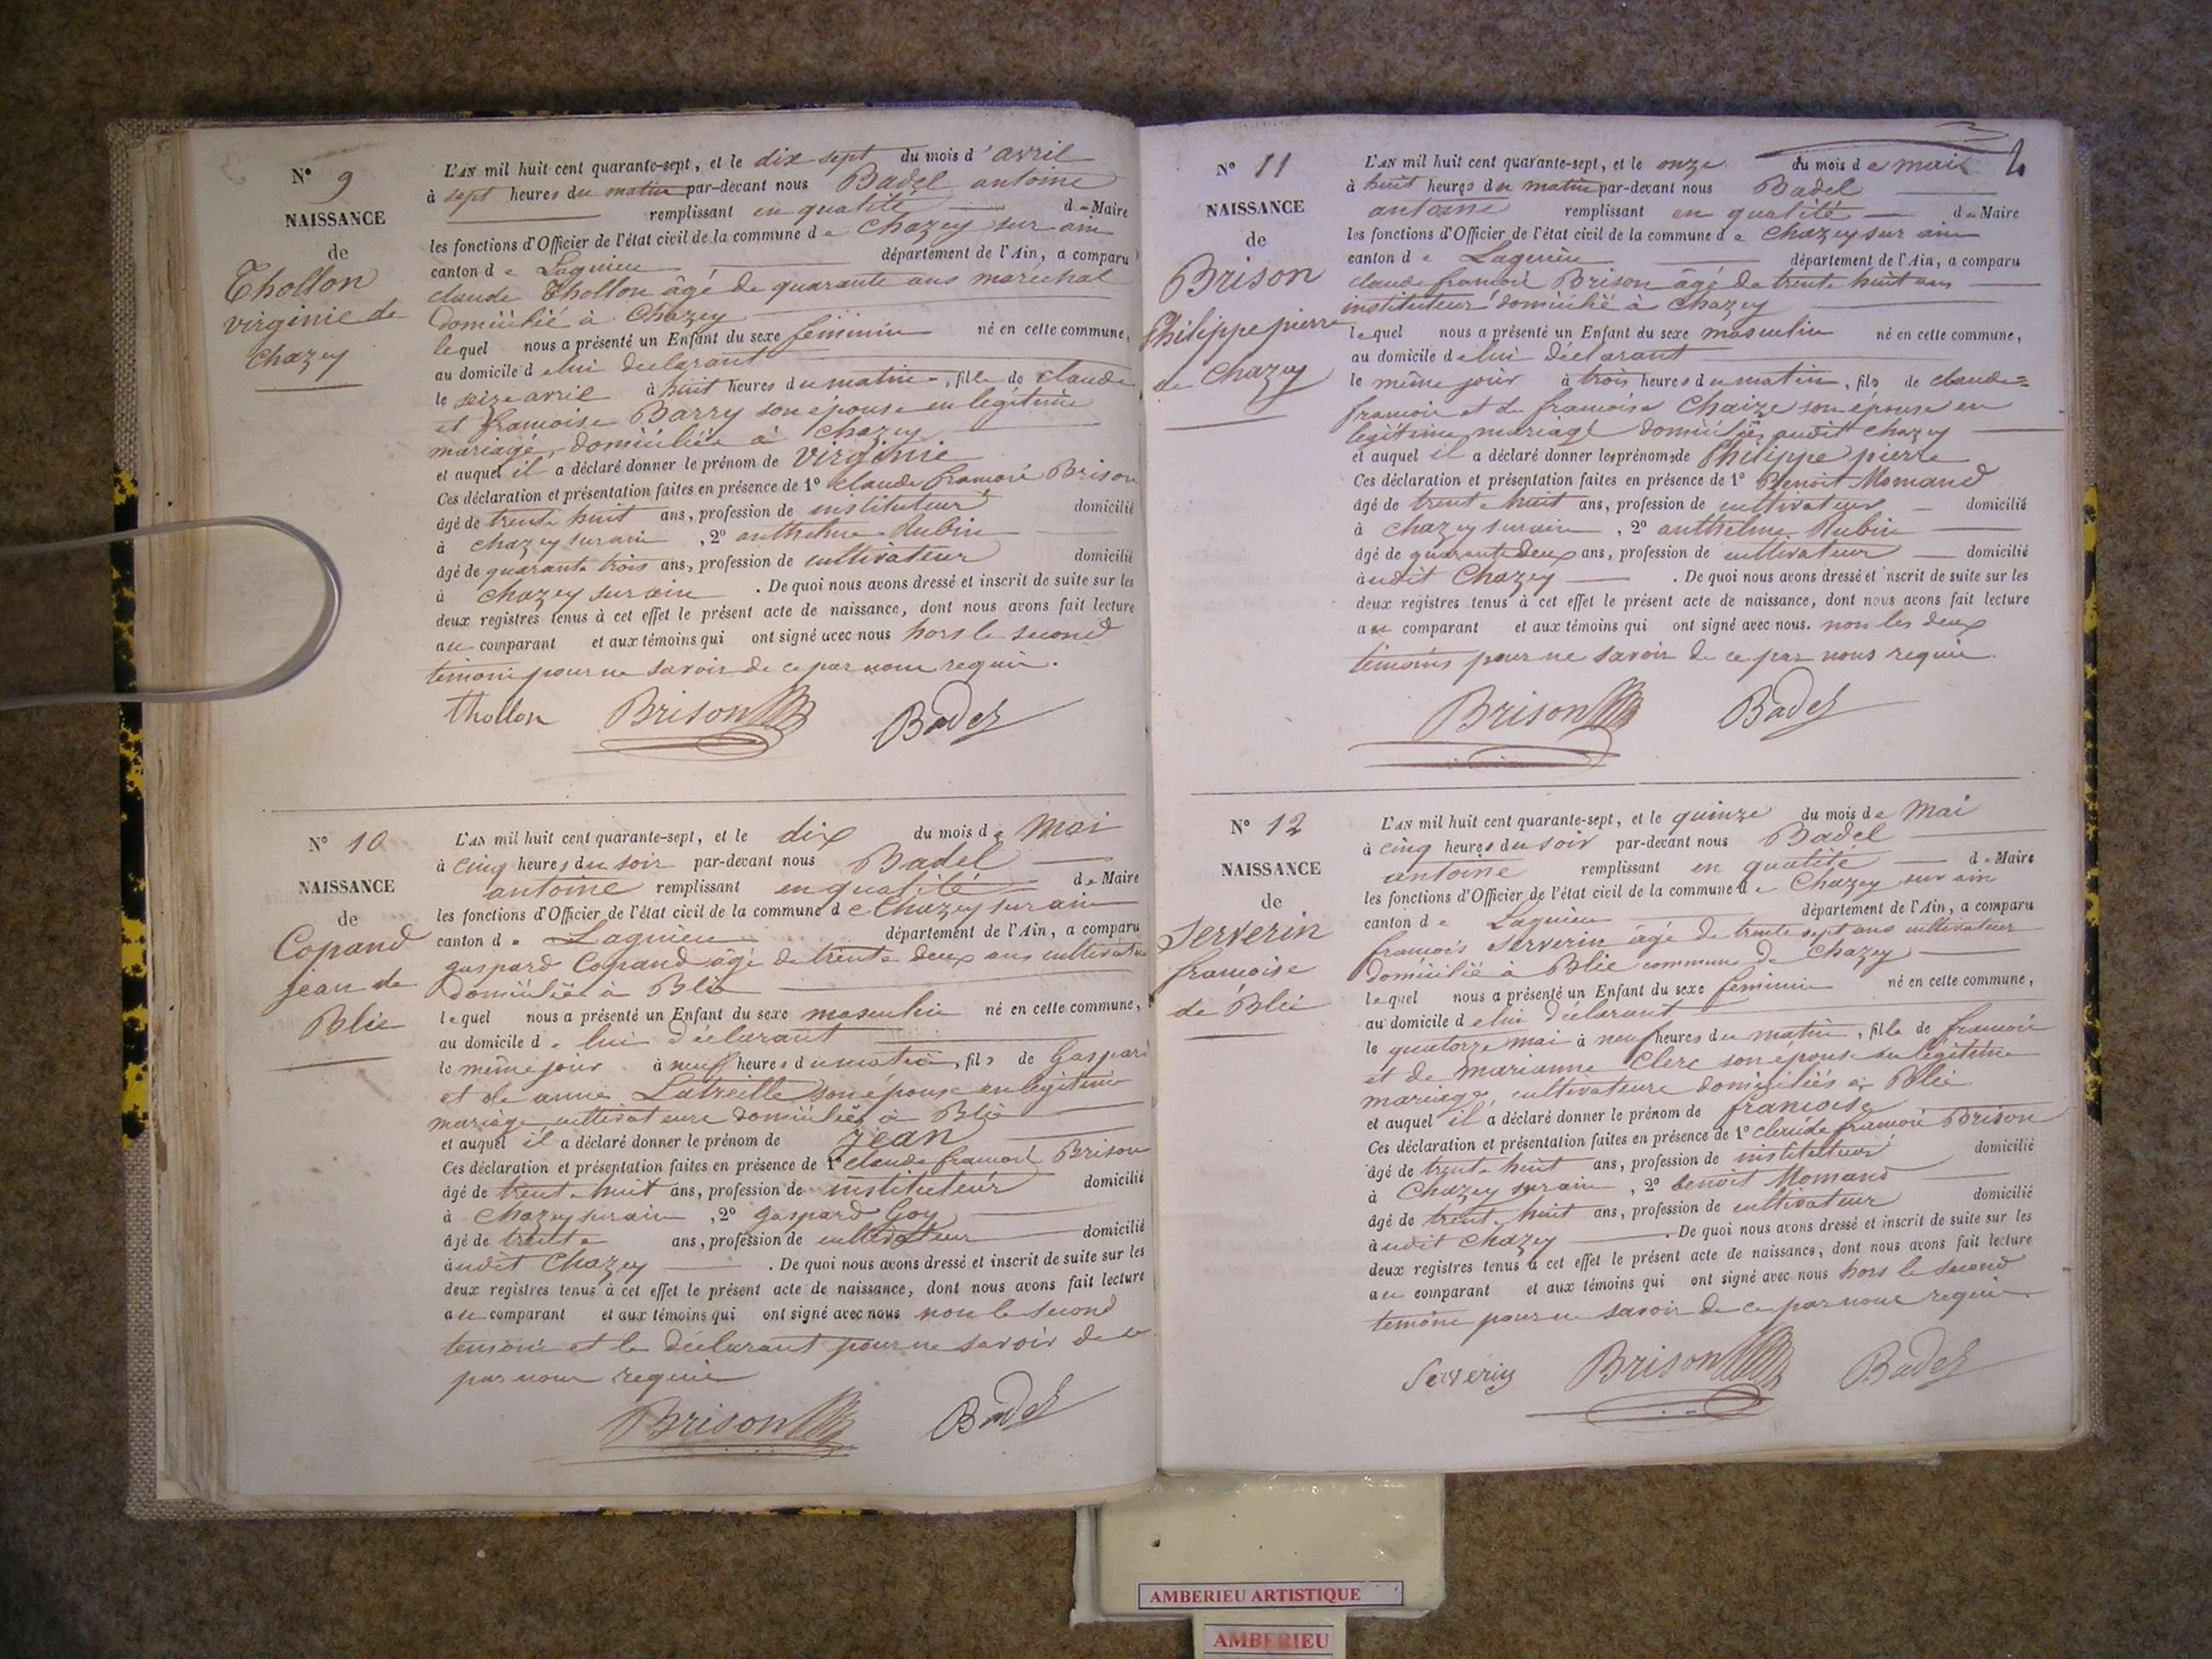 N° 9
NAISSANCE
de
Thollon
virginie de
chazey
L'AN mil huit cent quarante-sept, et le dix sept du mois d'avril
à sept heures du matin par-devant nous Badel antoine
remplissant en qualité de Maire
les fonctions d'Officier de l'état civil de la commune de Chazey sur ain
canton de Lagnieu département de l'Ain, a comparu
claude Thollon âgé de quarante ans maréchal
domicilié à Chazey
lequel nous a présenté un Enfant du sexe féminin né en cette commune,
au domicile de lui déclarant
le seize avril à huit heures du matin, fille de claude
et françoise Barry son épouse en légitime
mariage, domiciliés à chazey
et auquel il a déclaré donner le prénom de virginie
Ces déclaration et présentation faites en présence de 1° claude françois Brison
âgé de trente huit ans, profession de instituteur domicilié
à chazey sur ain, 2° anthelme Rubin
âgé de quarante trois ans, profession de cultivateur domicilié
à chazey sur ain. De quoi nous avons dressé et inscrit de suite sur les
deux registres tenus à cet effet le présent acte de naissance, dont nous avons fait lecture
au comparant et aux témoins qui ont signé avec nous hors le second
témoin pour ne savoir de ce par nous requis.
Thollon Brison Badel
N° 10
NAISSANCE
de
Copand
jean de
Blie
L'AN mil huit cent quarante-sept, et le dix du mois de Mai
à cinq heures du soir par-devant nous Badel
antoine remplissant en qualité de Maire
les fonctions d'Officier de l'état civil de la commune de Chazey sur ain
canton de Lagnieu département de l'Ain, a comparu
gaspard Copand âgé de trente deux ans cultivateur
domicilié à Blie
lequel nous a présenté un Enfant du sexe masculin né en cette commune,
au domicile de lui déclarant
le même jour à neuf heures du matin, fils de Gaspard
et de anne Latreille son épouse en légitime
mariage cultivateurs domiciliés à Blie
et auquel il a déclaré donner le prénom de jean
Ces déclaration et présentation faites en présence de 1° claude françois Brison
âgé de trente huit ans, profession de instituteur domicilié
à Chazey sur ain, 2° gaspard Goy
âgé de trente ans, profession de cultivateur domicilié
à udit Chazey. De quoi nous avons dressé et inscrit de suite sur les
deux registres tenus à cet effet le présent acte de naissance, dont nous avons fait lecture
au comparant et aux témoins qui ont signé avec nous non le second
temoin et le déclarant pour ne savoir de ce
par nous requis
Brison Badel
N° 11
NAISSANCE
de
Brison
Philippe pierre
de Chazey
L'AN mil huit cent quarante-sept, et le onze du mois de mai
à huit heures du matin par-devant nous Badel
antoine remplissant en qualité de Maire
les fonctions d'Officier de l'état civil de la commune de Chazey sur ain
canton de Lagnieu département de l'Ain, a comparu
claude françois Brison âgé de trente huit ans
instituteur domicilié à Chazey
lequel nous a présenté un Enfant du sexe masculin né en cette commune,
au domicile de lui déclarant
le même jour à trois heures du matin, fils de claude=
françois et de françoise Chaize son épouse en
légitime mariage domiciliés audit chazey
et auquel il a déclaré donner les prénoms de Philippe pierre
Ces déclaration et présentation faites en présence de 1° Benoit Momand
âgé de trente huit ans, profession de cultivateur domicilié
à chazey sur ain, 2° anthelme Rubin
âgé de quarante deux ans, profession de cultivateur domicilié
à udit Chazey. De quoi nous avons dressé et inscrit de suite sur les
deux registres tenus à cet effet le présent acte de naissance, dont nous avons fait lecture
au comparant et aux témoins qui ont signé avec nous. non les deux
témoins pour ne savoir de ce par nous requis.
Brison Badel
N° 12
NAISSANCE
de
Serverin
françoise
de Blie
L'AN mil huit cent quarante-sept, et le quinze du mois de Mai
à cinq heures du soir par-devant nous Badel
antoine remplissant en qualité de Maire
les fonctions d'Officier de l'état civil de la commune de Chazey sur ain
canton de Lagnieu département de l'Ain, a comparu
françois Serverin âgé de trente sept ans cultivateur
domicilié à Blie commune de Chazey
lequel nous a présenté un Enfant du sexe féminin né en cette commune,
au domicile de lui déclarant
le quatorze mai à neuf heures du matin, fille de françois
et de marianne Clerc son épouse en légitime
mariage, cultivateurs domiciliés à Blie
et auquel il a déclaré donner le prénom de françoise
Ces déclaration et présentation faites en présence de 1° claude françois Brison
âgé de trente huit ans, profession de instituteur domicilié
à Chazey sur ain, 2° benoit Momand
âgé de trente huit ans, profession de cultivateur domicilié
à udit chazey. De quoi nous avons dressé et inscrit de suite sur les
deux registres tenus à cet effet le présent acte de naissance, dont nous avons fait lecture
au comparant et aux témoins qui ont signé avec nous hors le second
temoin pour ne savoir de ce par nous requis
Serverin Brison Badel
AMBERIEU ARTISTIQUE
AMBERIEU